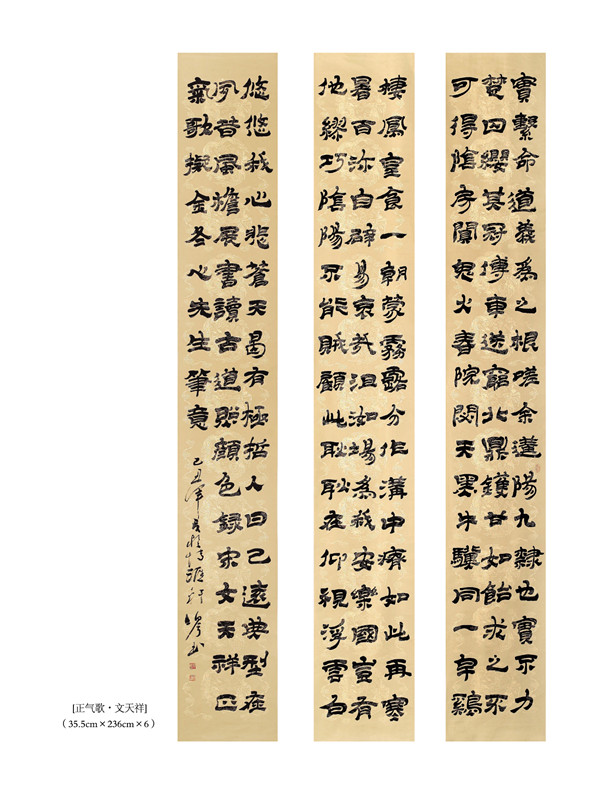 實繫命道義為之根嗟余遘陽九隸也實不力
楚囚纓其冠傳車送窮北鼎鑊甘如飴求之不
可得陰房闃鬼火春院閟天黑牛驥同一皁鷄
棲鳳皇食一朝蒙霧露分作溝中瘠如此再寒
暑百沴自辟易哀哉沮洳場為我安樂國豈有
他繆巧陰陽不能賊顧此耿耿在仰視浮雲白
悠悠我心悲蒼天曷有極哲人日已遠典型在
夙昔風檐展書讀古道照顏色錄宋文天祥正
氣歌擬金冬心先生筆意
己丑
[正气歌·文天祥]
（35.5cm×236cm×6）